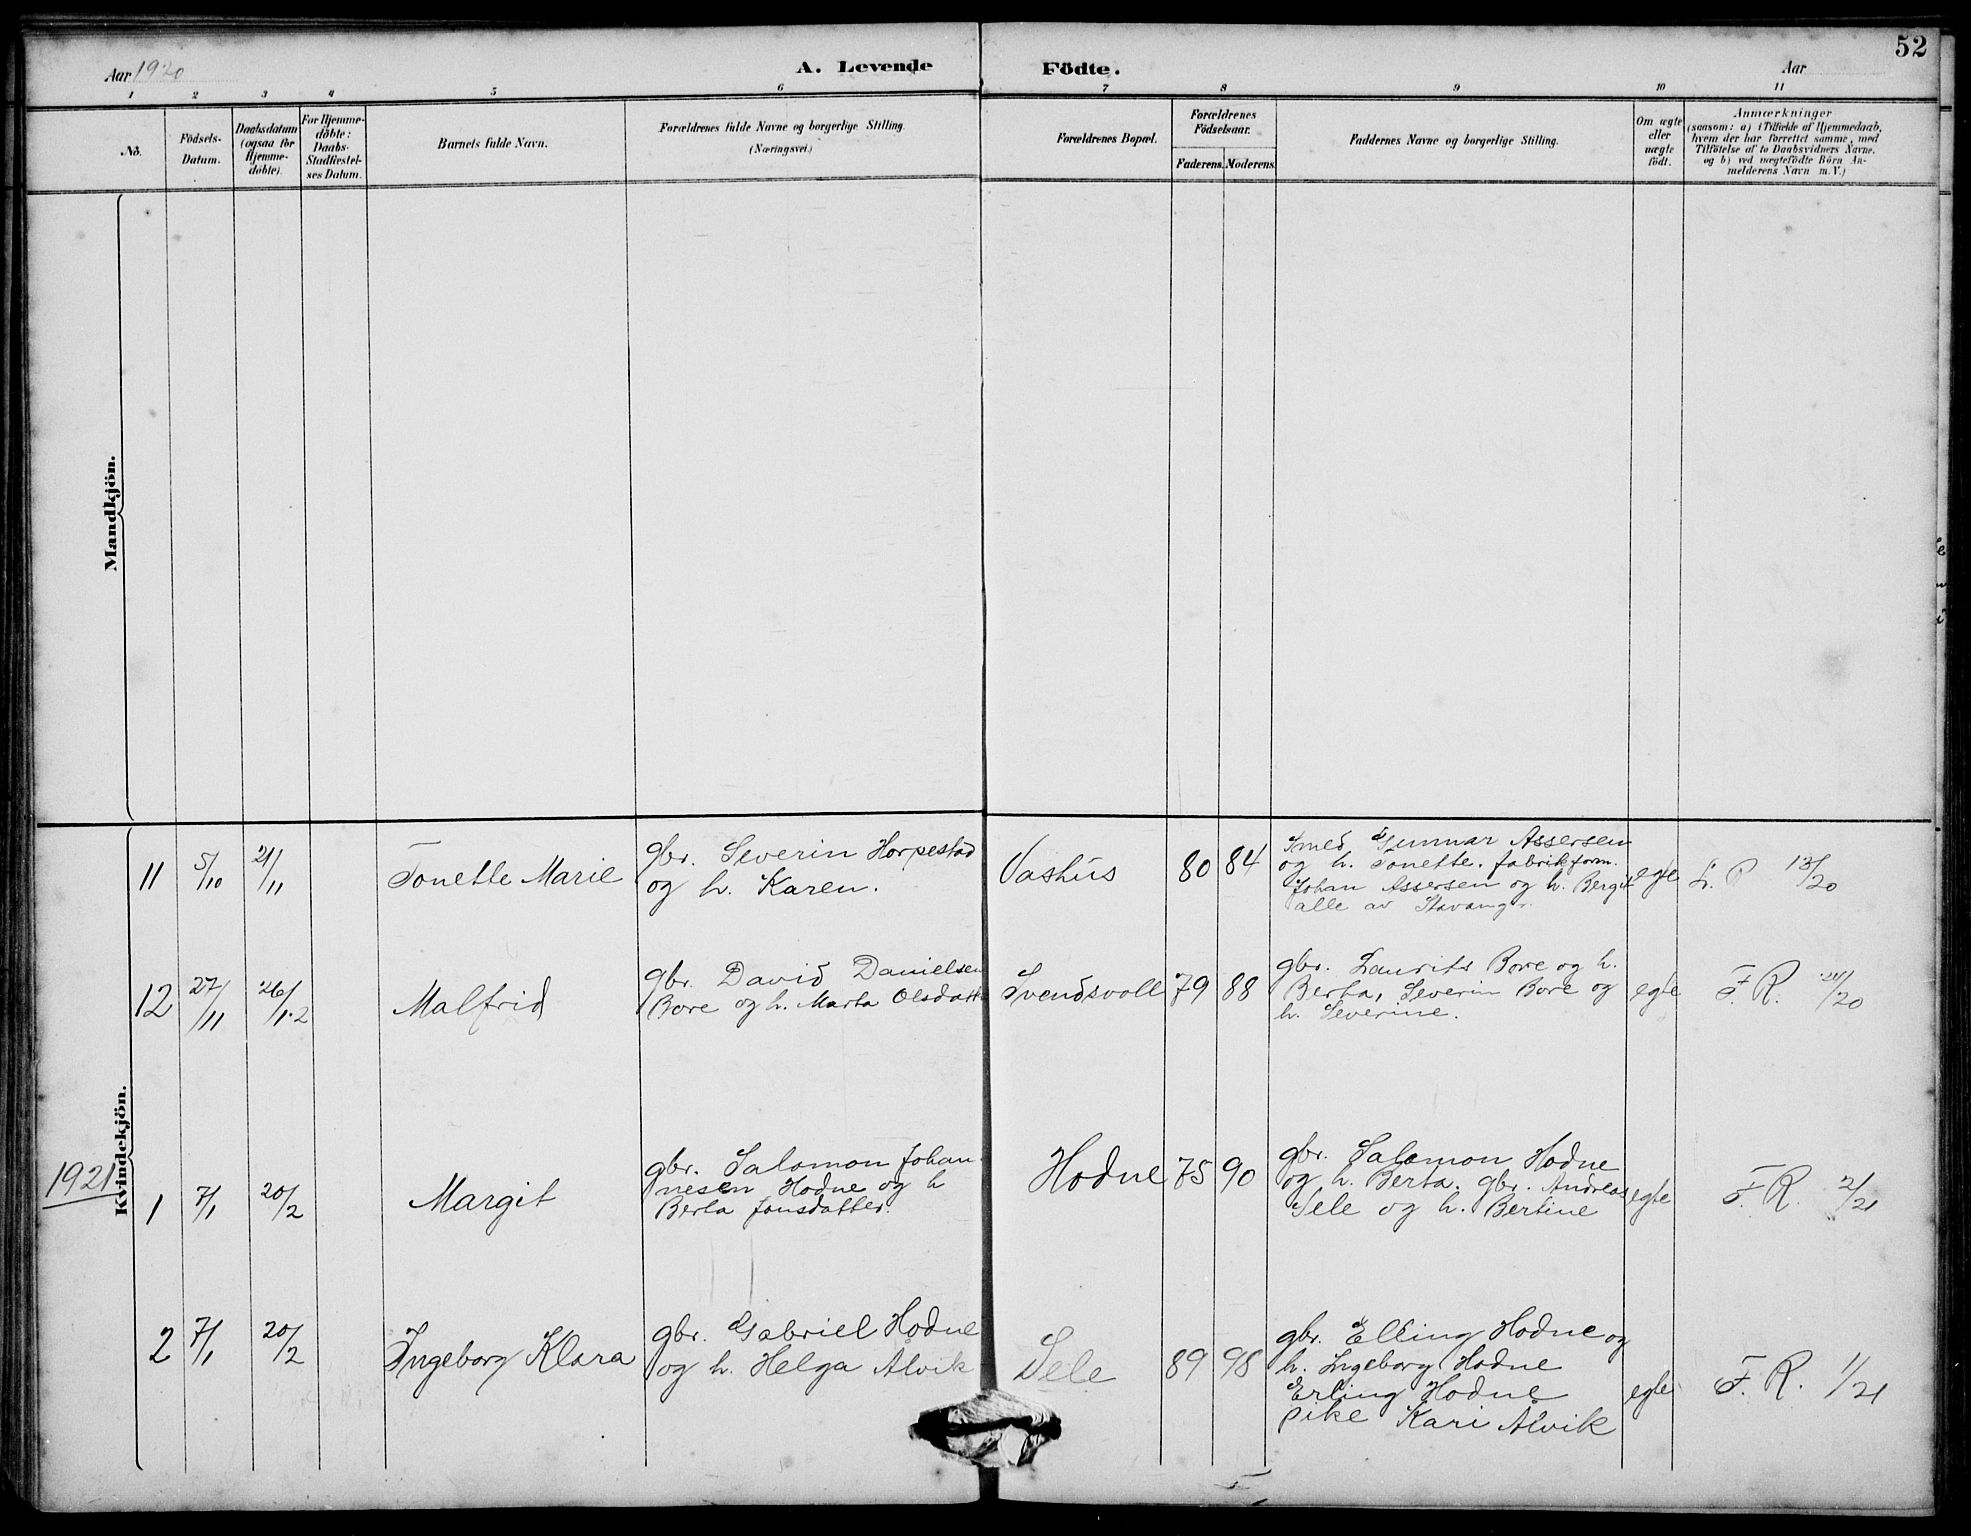 52
Aar 1920
A. Levende
Födte.
Aar
1 2 3 4 5 6 7 8 9 10 11
No.
Födsels-
Datum.
Daabsdatum
(ogsaa for
Hjemme-
döbte).
For Hjemme-
döbte:
Daabs-
Stadfæstel-
ses Datum.
Barnets fulde Navn.
Forældrenes fulde Navne og borgerlige Stilling.
(Næringsvei.)
Forældrenes Bopæl.
Forældrenes
Födselsaar.
Faderens. Moderens.
Faddernes Navne og borgerlige Stilling.
Om ægte
eller
uægte
födt.
Anmærkninger
(saasom: a) i Tilfælde af Hjemmedaab,
hvem der har forrettet samme, med
Tilföielse af to Daabsvidners Navne,
og b) ved uægtefödte Börn An-
melderens Navn m. V.)
Mandkjön.
Kvindekjön.
11 5/10 21/11
Tonette Marie
gbr. Severin Horpestad
og h. Karen.
Vashus
80 84
Smed Gunnar Assersen
og h. Tonette. fabrikform.
Johan Assersen og h. Bergit
alle av Stavanger
egte
F. R. 13/20
12 27/11 26/12
Malfrid
gbr. David Danielsen
Bore og h. Marta Olsdatt
Svendsvoll
79 88
gbr. Laurits Bore og h.
Berta, Severin Bore og
h. Severine.
egte
F. R. /20
1921
1 7/1 20/2
Margit
gbr. Salomon Johan-
nesen Hodne og h
Berta Jonsdatter.
Hodne
75 90
gbr. Salomon Hodne
og h. Berta. gbr. Andreas
Sele og h. Bertine
egte
F. R. 2/21
2 7/1 20/2
Ingeborg Klara
gbr. Gabriel Hodne
og h. Helga Alvik
Sele
89 98
gbr. Elling Hodne og
h. Ingeborg Hodne
Erling Hodne
pike Kari Alvik
egte
F. R. 1/21